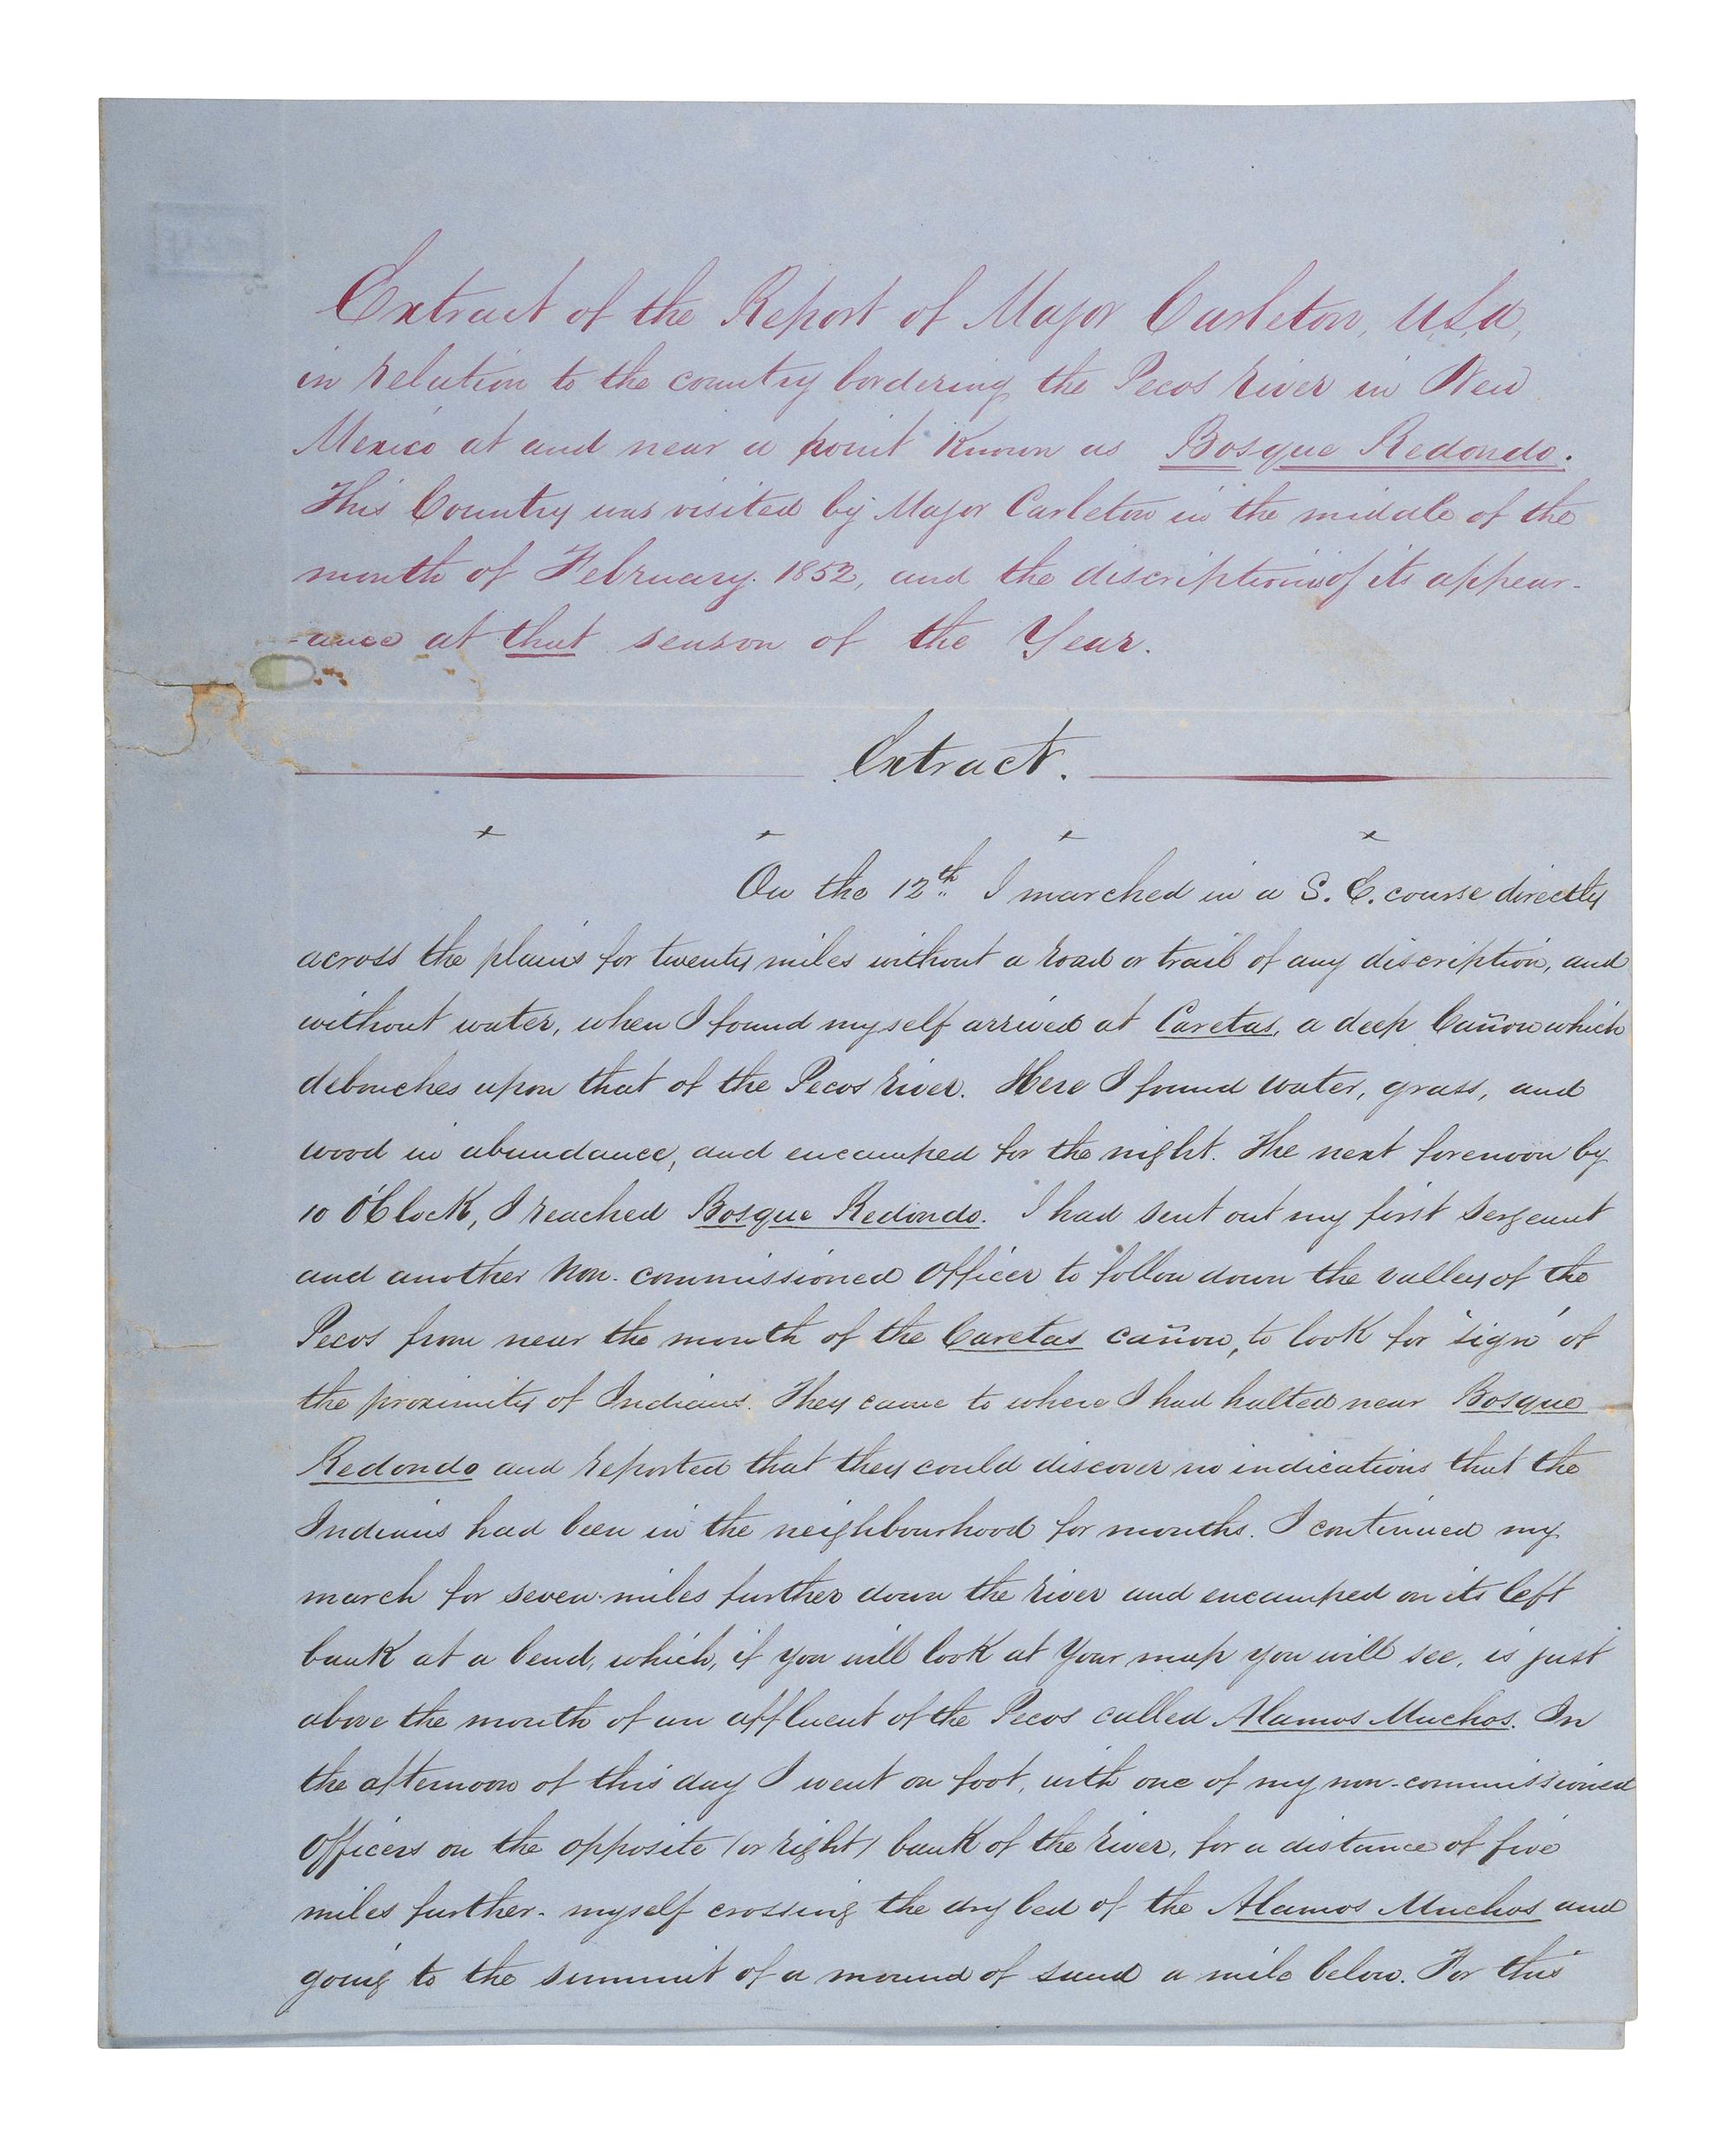 Extract of the Report of Major Carleton, U.S.A,
in relation to the country bordering the Pecos River in New
Mexico at and near a point Known as Bosque Redondo.
This Country was visited by Major Carleton in the middle of the
month of February. 1852, and the discription is of its appear-
-ance at that season of the Year.
Extract.
x x x x
On the 12th I marched in a S. E. course directly
across the plains for twenty miles without a road or trail of any discription, and
without water, when I found myself arrived at Caretas, a deep Cañon which
debouches upon that of the Pecos River. Here I found water, grass, and
wood in abundance, and encamped for the night. The next forenoon by
10 O'Clock, I reached Bosque Redondo. I had sent out my first Sergeant
and another Non-commissioned Officer to follow down the valley of the
Pecos from near the mouth of the Caretas cañon, to look for "sign" of
the proximity of Indians. They came to where I had halted near Bosque
Redondo and reported that they could discover no indications that the
Indians had been in the neighbourhood for months. I continued my
march for seven miles further down the river and encamped on its left
bank at a bend, which, if you will look at Your map you will see, is just
above the mouth of an affluent of the Pecos called Alamos Muchos. In
the afternoon of this day I went on foot, with one of my non-commissioned
Officers on the opposite (or right) bank of the river, for a distance of five
miles further- myself crossing the dry bed of the Alamos Muchos and
going to the summit of a mound of sand a mile below. For this